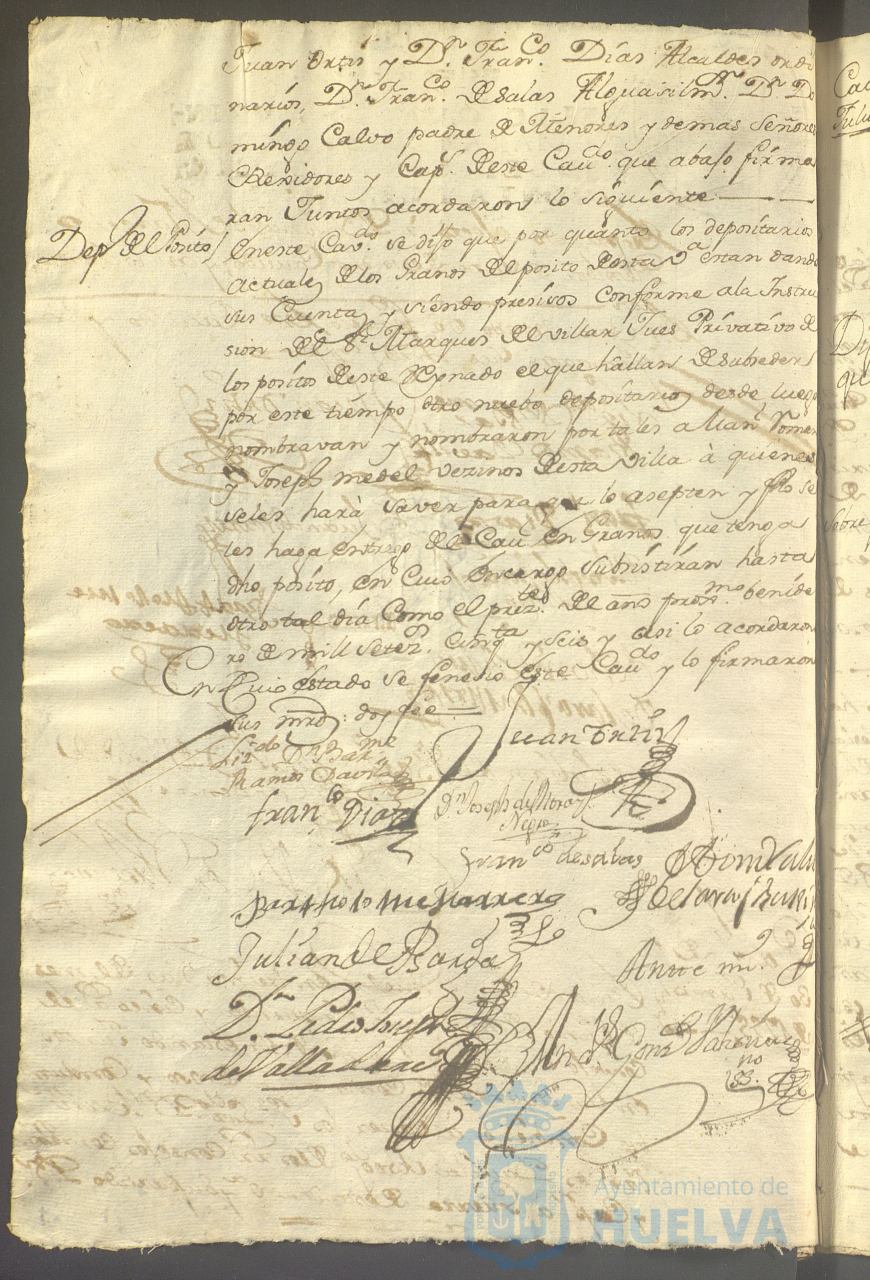 Juan Ortis y Dn. Franco. Días Alcaldes ordi
narios, Dn. Franco. de Salas Alguasilmr. Dn. Do
mingo Calvo padre de Menores y demas Señores
Rexidores y Capes. deste Cavdo. que abajo firma
ran Juntos acordaron lo siguiente
Depo. del Posito
Eneste Cavdo. se dijo que por quanto los depositarios
actuales de los Granos del posito desta Va. estan dando
sus Cuentas y siendo presisos conforme ala Instru
sion del Sr. Marques del Villar Jues Privativo de
los positos deste Reynado el que hallan de subseder
por este tiempo otro nuebo depositarios desde luego
nombravan y nombraron por tales a
y Joseph medel vezinos desta villa à quienes
seles harà saver para que lo asepten y se
les haga entrego del en Granos que tenga
dho posito, en Cuio Encargo subsistirán hasta
otro tal día Como el preste. del año proxmo. benide
ro de mill Setez. cinqta. y seis y asi lo acordaron
En Cuio estado se fenecio este Cavdo. y lo firmaron
sus mrds: doy fee =
Lizdo. Dn. Barme
Ramos Davila
Juan Ortis
Franco. Diaz
Dn. Joseph de Mora
Negro
Franco. de salas
Domo. Calvo
Bartholome Marrero
Julian de Barga
Ante mí.
Dn. Pedro Joseph
de Valladares
Gonz
no
Ayuntamiento de
HUELVA